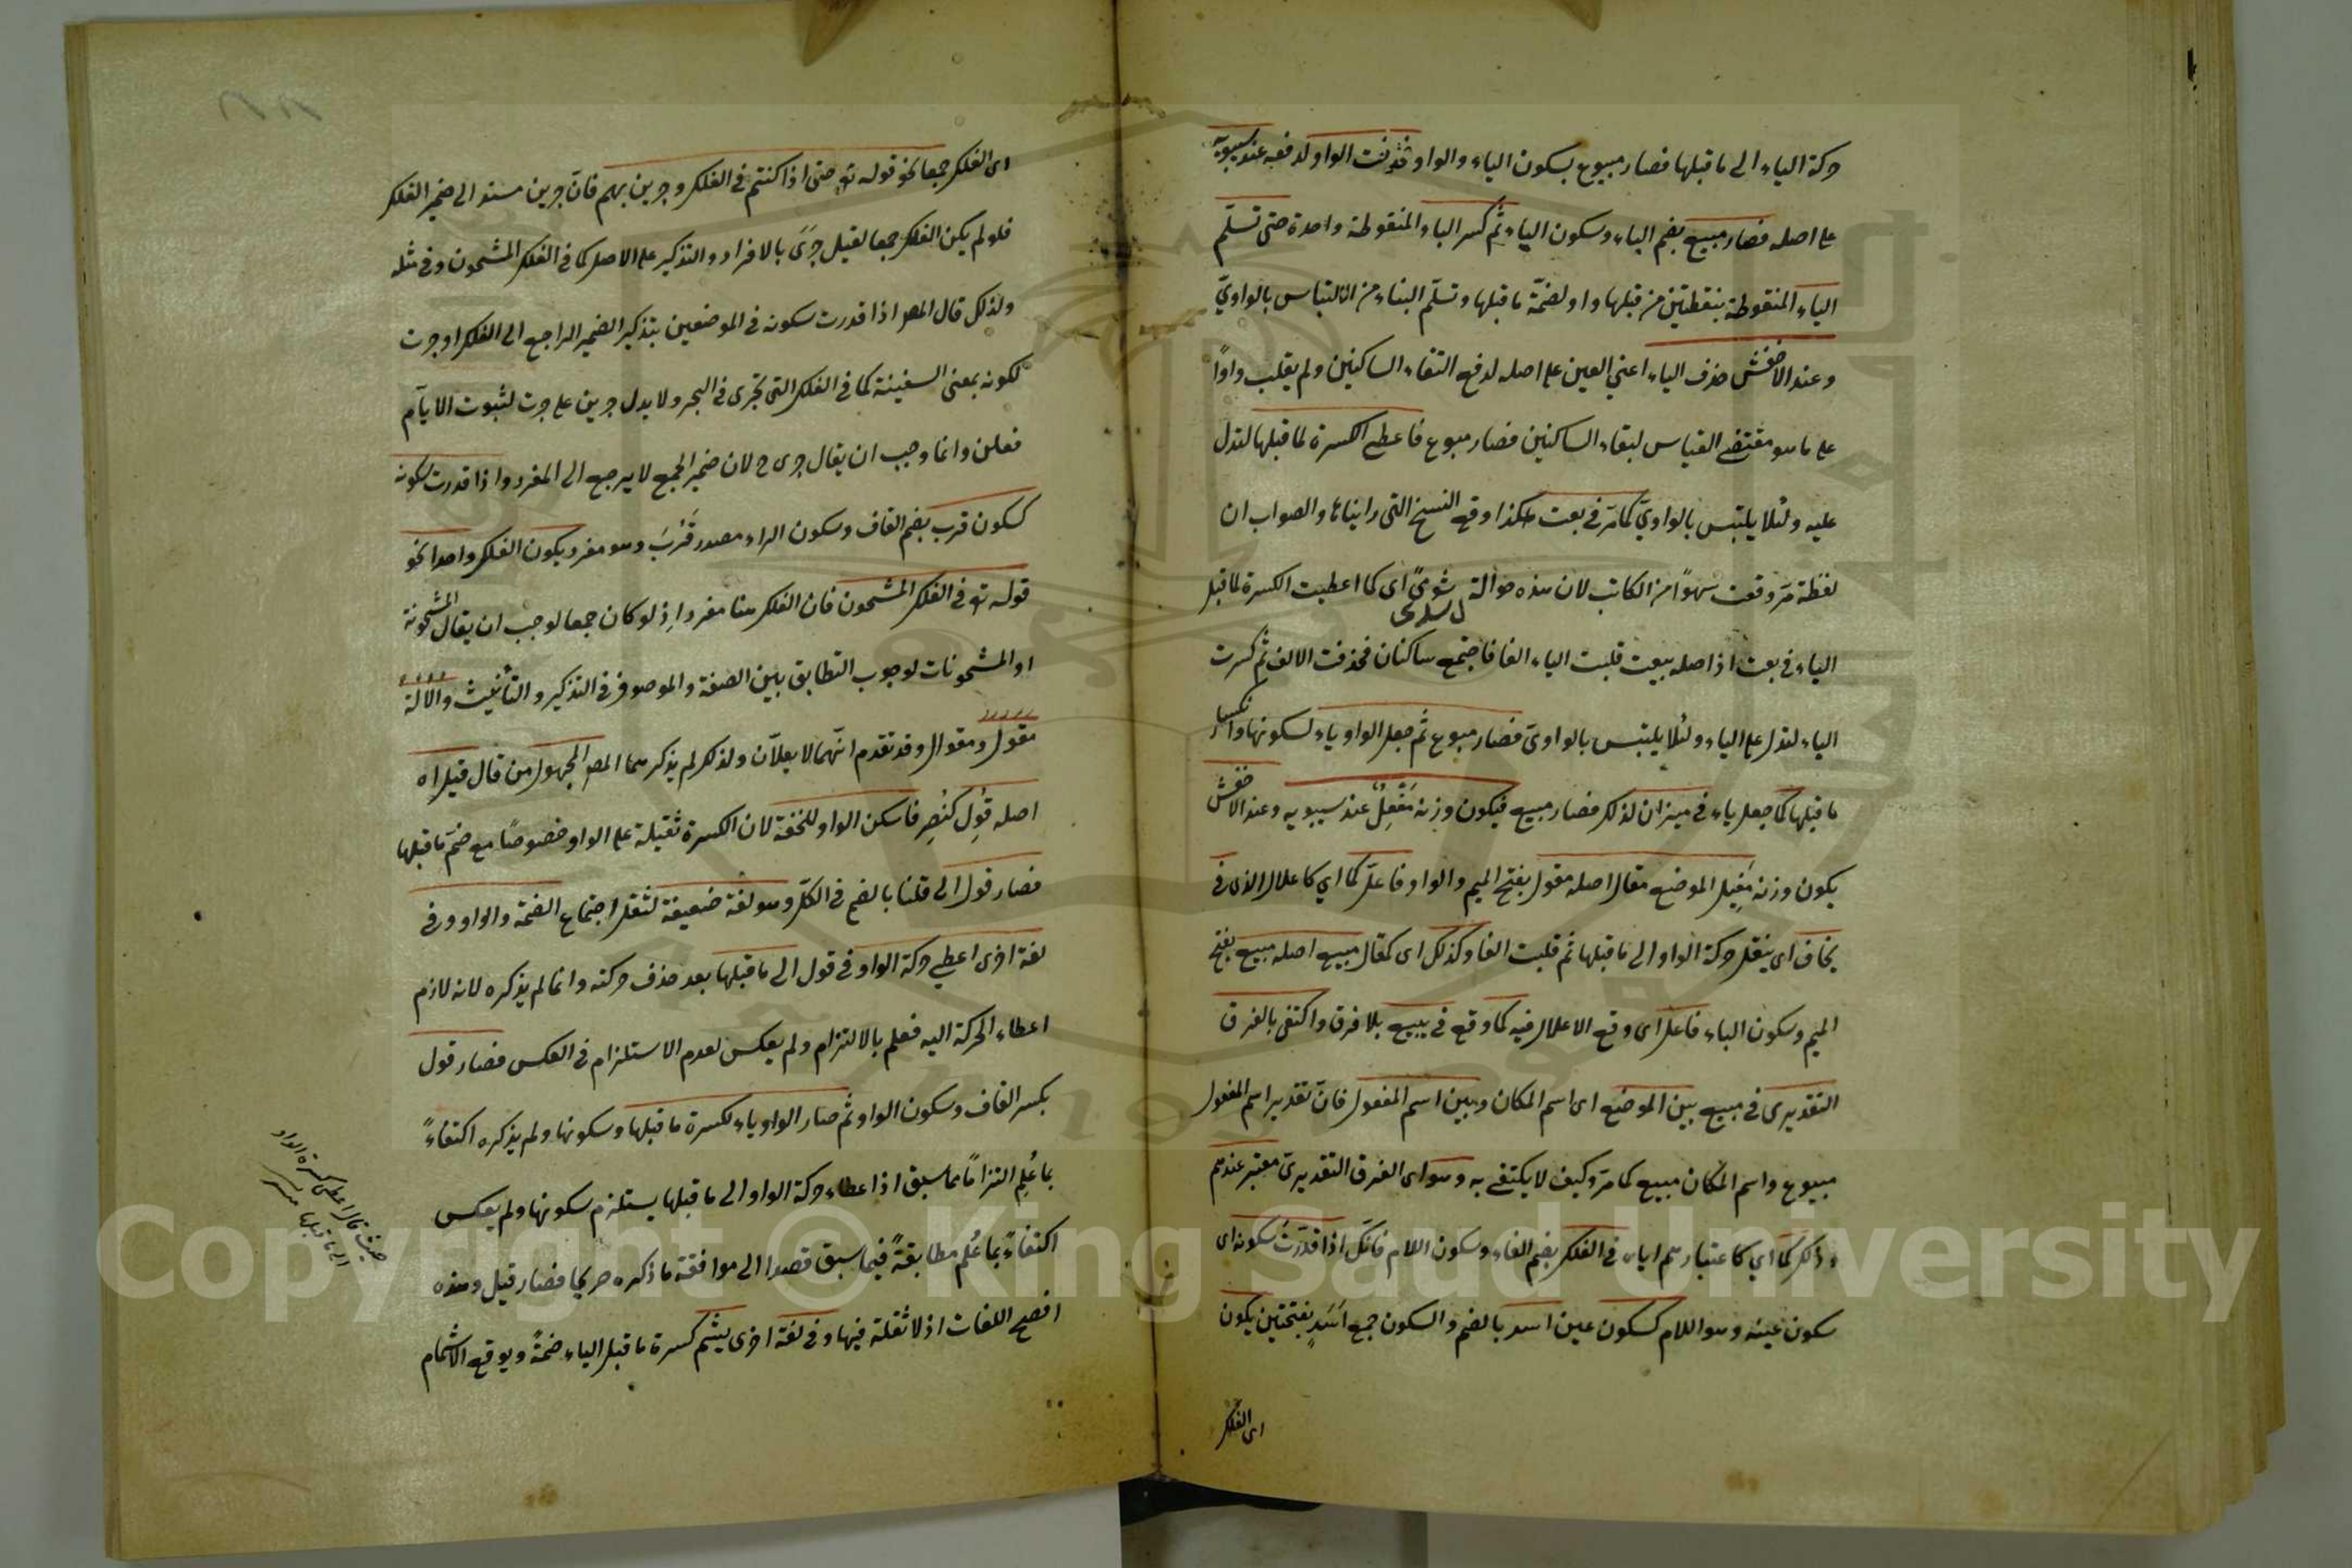 حركة الياء الى ما قبلها فصار مبيوع بسكون الياء والواو فحذفت الواو لدفعه عند سيبويه
على اصله فصار مبيع بضم الباء وسكون الياء ثم كسر الباء المنقوطة واحدة حتى تسلم
الياء المنقوطة بنقطتين من قبلها واو لضمة ما قبلها وتسلم البناء من الالتباس بالواوي
وعند الاخفش حذف الياء اعني العين على اصله لدفع التقاء الساكنين ولم يقلب واوًا
على ما هو مقتضى القياس لبقاء الساكنين فصار مبوع فاعطى الكسرة لما قبلها لتدل
عليه ولئلا يلتبس بالواوي كما مر في بعت هكذا وقع النسخ التي رايناها والصواب ان
لفظة مر وقعت سهوًا من الكاتب لان هذه حوالة اى كما اعطيت الكسرة لما قبل
الياء في بعت اذ اصله بيعت قلبت الياء الفا فاجتمع ساكنان فحذفت الالف ثم كسرت
الياء لتدل على الياء ولئلا يلتبس بالواوى فصار مبوع ثم جعل الواو ياء لسكونها وانكسار
ما قبلها كما جعل ياء في ميزان لذلك فصار مبيع فيكون وزنه مَفْعِلٌ عند سيبويه وعند الاخفش
يكون وزنه مفيل الموضع مقال اصله مقول بفتح الميم والواو فاعل كما اي كاعلال الذى في
يخاف اى ينقل حركة الواو الى ما قبلها ثم قلبت الفا وكذلك اى كمقال مبيع اصله مبيع بفتح
الميم وسكون الباء فاعل اى وقع الاعلال فيه كما وقع في يبيع بلا فرق واكتفى بالفرق
التقديرى في مبيع بين الموضع اى اسم المكان وبين اسم المفعول فان تقدير اسم المفعول
مبيوع واسم المكان مبيع كما مر وكيف لا يكتفى به وهو اى الفرق التقديرى معتبر عندهم
وذلك كما اي كاعتبارهم اياه في الفلك بضم الفاء وسكون اللام فانك اذا قدرت سكونه اى
سكون عينه وهو اللام كسكون عين اسد بالضم والسكون جمع اَسَدٍ بفتحتين يكون
اى الفلك
اى الفلك جمعا نحو قوله تع حتى اذا كنتم في الفلك وجرين بهم فان جرين مسند الى ضمير الفلك
فلو لم يكن الفلك جمعا لقيل جرى بالافراد والتذكير على الاصل كما في الفلك المشحون وفي مثله
ولذلك قال المص اذا قدرت سكونه في الموضعين بتذكير الضمير الراجع الى الفلك او جرت
لكونه بمعنى السفينة كما في الفلك التى تجرى في البحر ولا يدل جرين على جرت لثبوت الايام
فعلن وانما وجب ان يقال جرى ح لان ضمير الجمع لا يرجع الى المفرد واذا قدرت سكونه
كسكون قرب بضم القاف وسكون الراء مصدر قَرُبَ وهو مفرد يكون الفلك واحدا نحو
قوله تع في الفلك المشحون فان الفلك هنا مفرد اِذ لو كان جمعا لوجب ان يقال المشحونة
او المشحونات لوجوب التطابق بين الصفة والموصوف في التذكير والتأنيث والالة
مقول ومقوال وقد تقدم انهما لا يعلان ولذلك لم يذكرهما المص المجهول من قال قيل اه
اصله قُوِل كنُصِر فاسكن الواو للخفة لان الكسرة ثقيلة على الواو خصوصًا مع ضم ما قبلها
فصار قول الى قلنا بالضم في الكل وهو لغة ضعيفة لثقل اجتماع الضمة والواو وفي
لغة اخرى اعطى حركة الواو في قول الى ما قبلها بعد حذف حركته وانما لم يذكره لانه لازم
اعطاء الحركة اليه فعلم بالالتزام ولم يعكس لعدم الاستلزام في العكس فصار قول
بكسر القاف وسكون الواو ثم صار الواو ياء لكسرة ما قبلها وسكونها ولم يذكره اكتفاءً
بما عُلِم التزامًا مما سبق اذ اعطاء حركة الواو الى ما قبلها يستلزم سكونها ولم يعكس
اكتفاءً بما عُلم مطابقةً فيما سبق قصدا الى موافقة ما ذكره صريحا فصار قيل وهذه
افصح اللغات اذ لا ثقلة فيها وفي لغة اخرى يشم كسرة ما قبل الياء ضمةً ويوقع الاشمام
حيث قال اعطى كسرة الواو
الى ما قبلها
Copyright © King Saud University